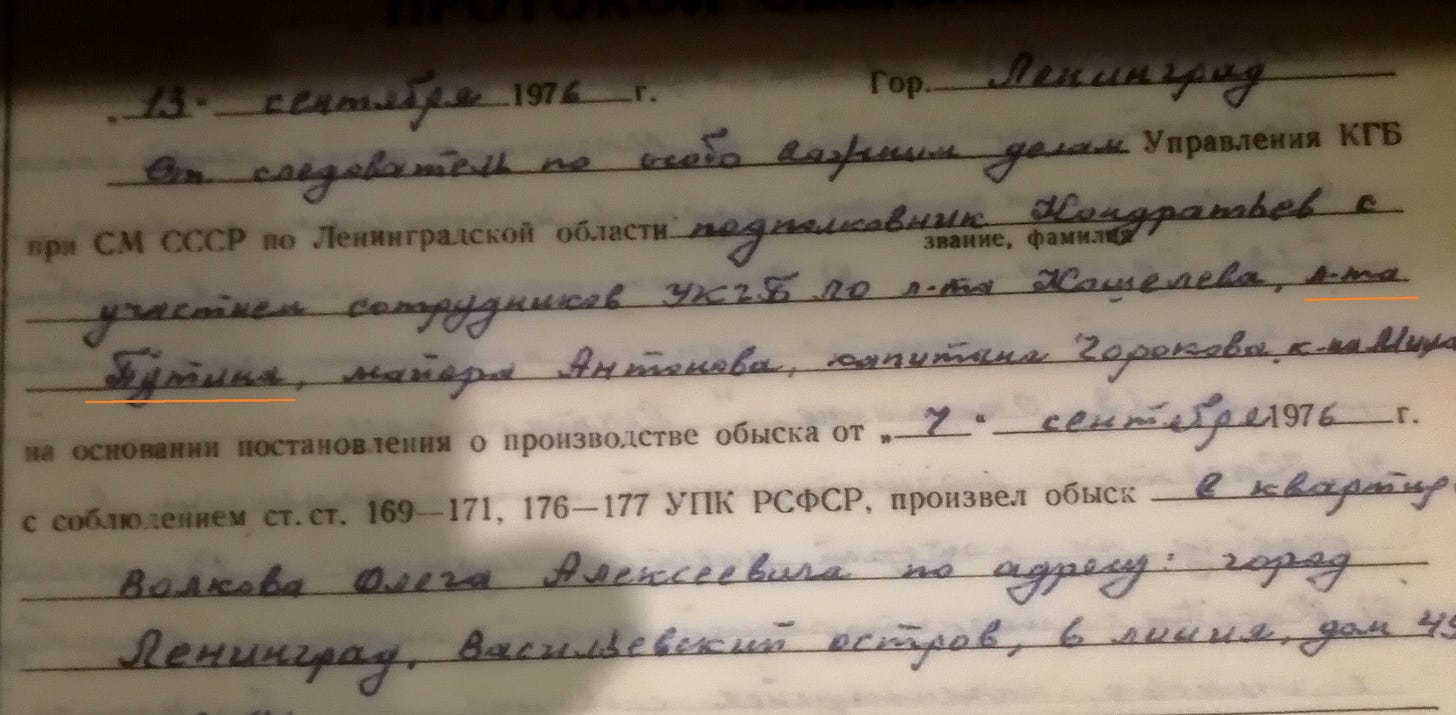 ПРОТОКОЛ ОБЫСКА
„13“ сентября 1976 г. Гор. Ленинград
Ст. следователь по особо важным делам Управления КГБ
при СМ СССР по Ленинградской области подполковник Кондратьев с
звание, фамилия
участием сотрудников УКГБ ЛО л-та Кошелева, л-та
Путина, майора Антонова, капитана Горохова, к-на
на основании постановления о производстве обыска от „7“ сентября 1976 г.
с соблюдением ст. ст. 169—171, 176—177 УПК РСФСР, произвел обыск в квартир
Волкова Олега Алексеевича по адресу: город
Ленинград, Васильевский остров, линия, дом